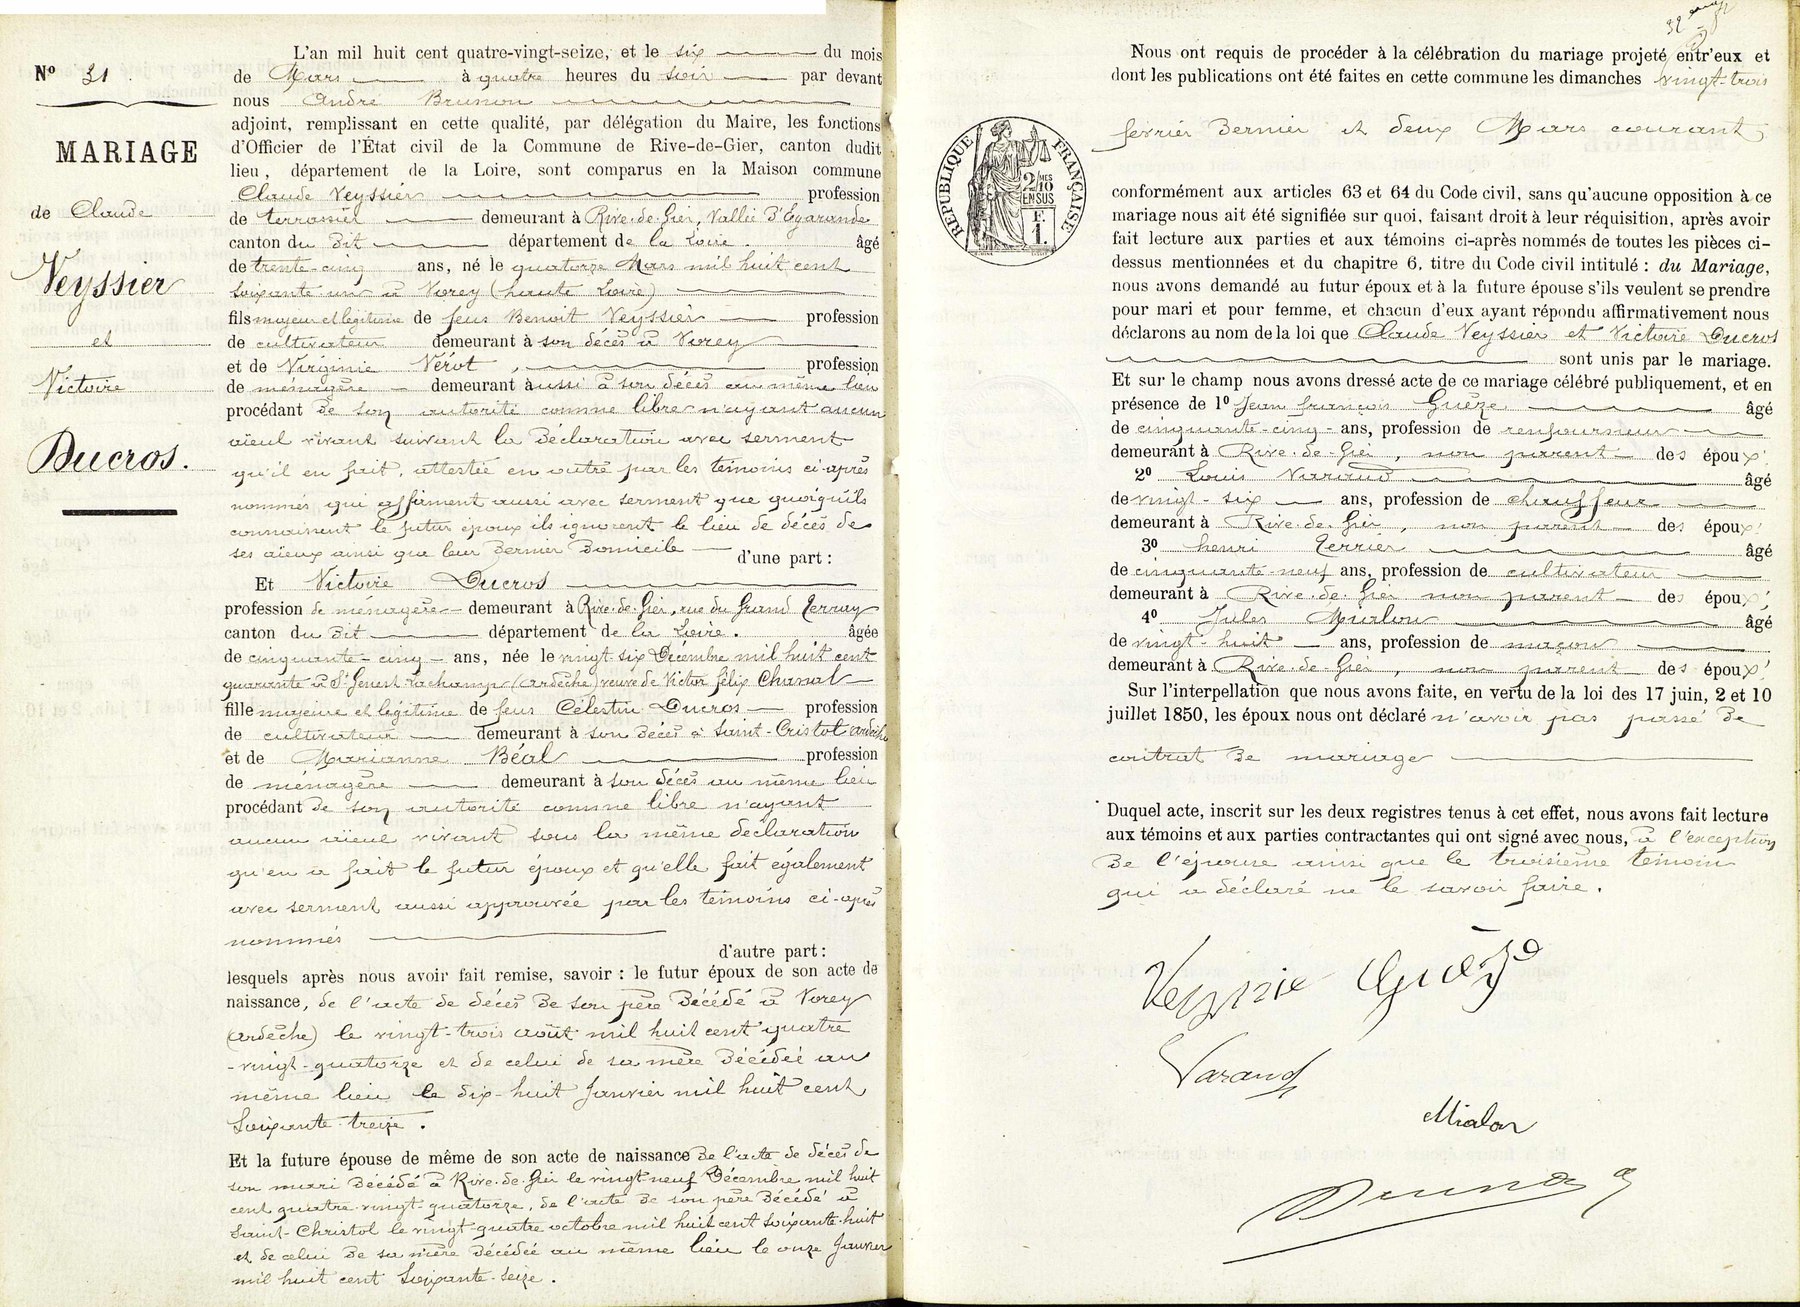 N° 31
MARIAGE
de Claude
Veyssier
et
Victoire
Ducros.
L'an mil huit cent quatre-vingt-seize, et le six du mois
de Mars à quatre heures du soir par devant
nous André Brunon
adjoint, remplissant en cette qualité, par délégation du Maire, les fonctions
d'Officier de l'État civil de la Commune de Rive-de-Gier, canton dudit
lieu, département de la Loire, sont comparus en la Maison commune
Claude Veyssier profession
de terrassier demeurant à Rive-de-Gier, Vallée d'Egarande
canton du dit département de la Loire. âgé
de trente-cinq ans, né le quatorze Mars mil huit cent
soixante un à Vorey (haute Loire)
fils majeur et légitime de feus Benoit Veyssier profession
de cultivateur demeurant à son décès à Vorey
et de Virginie Vérot, profession
de ménagère demeurant aussi à son décès au même lieu
procédant de son autorité comme libre n'ayant aucun
aïeul vivant suivant la déclaration avec serment
qu'il en fait, attestée en outre par les témoins ci-après
nommés qui affirment aussi avec serment que quoiqu'ils
connaissent le futur époux ils ignorent le lieu de décès de
ses aïeux ainsi que leur dernier domicile d'une part :
Et Victoire Ducros
profession de ménagère demeurant à Rive-de-Gier, rue du Grand
canton du dit département de la Loire. âgée
de cinquante-cinq ans, née le vingt six Décembre mil huit cent
quarante à St Genest Lachamp (ardèche) veuve de Victor félix Chanal
fille majeure et légitime de feus Célestin Ducros profession
de cultivateur demeurant à son décès à Saint-Cristol ardèche
et de Marianne Béal profession
de ménagère demeurant à son décès au même lieu
procédant de son autorité comme libre n'ayant
aucun aïeul vivant sous la même déclaration
qu'en a fait le futur époux et qu'elle fait également
avec serment aussi approuvée par les témoins ci-après
nommés
d'autre part :
lesquels après nous avoir fait remise, savoir : le futur époux de son acte de
naissance, de l'acte de décès de son père décédé à Vorey
(ardèche) le vingt-trois août mil huit cent quatre
-vingt-quatorze et de celui de sa mère décédée au
même lieu le dix-huit Janvier mil huit cent
soixante-treize.
Et la future épouse de même de son acte de naissance de l'acte de décès de
son mari décédé à Rive-de-Gier le vingt neuf Décembre mil huit
cent quatre-vingt-quatorze, de l'acte de son père décédé à
Saint-Christol le vingt-quatre octobre mil huit cent soixante-huit
et de celui de sa mère décédée au même lieu le onze Janvier
mil huit cent soixante-seize.
Nous ont requis de procéder à la célébration du mariage projeté entr'eux et
dont les publications ont été faites en cette commune les dimanches vingt-trois
février dernier et deux Mars courant
RÉPUBLIQUE FRANÇAISE
2/MES
10
EN SUS
F.
1.
conformément aux articles 63 et 64 du Code civil, sans qu'aucune opposition à ce
mariage nous ait été signifiée sur quoi, faisant droit à leur réquisition, après avoir
fait lecture aux parties et aux témoins ci-après nommés de toutes les pièces ci-
dessus mentionnées et du chapitre 6, titre du Code civil intitulé : du Mariage,
nous avons demandé au futur époux et à la future épouse s'ils veulent se prendre
pour mari et pour femme, et chacun d'eux ayant répondu affirmativement nous
déclarons au nom de la loi que Claude Veyssier et Victoire Ducros
sont unis par le mariage.
Et sur le champ nous avons dressé acte de ce mariage célébré publiquement, et en
présence de 1° Jean françois Guèze âgé
de cinquante-cinq ans, profession de renfourneur
demeurant à Rive-de-Gier, non parent des époux
2° Louis Varaud âgé
de vingt-six ans, profession de chauffeur
demeurant à Rive-de-Gier, non parent des époux
3° henri Terrier âgé
de cinquante-neuf ans, profession de cultivateur
demeurant à Rive-de-Gier non parent des époux
4° Jules Mialon âgé
de vingt-huit ans, profession de maçon
demeurant à Rive-de-Gier, non parent des époux
Sur l'interpellation que nous avons faite, en vertu de la loi des 17 juin, 2 et 10
juillet 1850, les époux nous ont déclaré n'avoir pas passé de
contrat de mariage
Duquel acte, inscrit sur les deux registres tenus à cet effet, nous avons fait lecture
aux témoins et aux parties contractantes qui ont signé avec nous, à l'exception
de l'épouse ainsi que le troisième témoin
qui a déclaré ne le savoir faire.
Guèze
Varaud
Mialon
Brunon